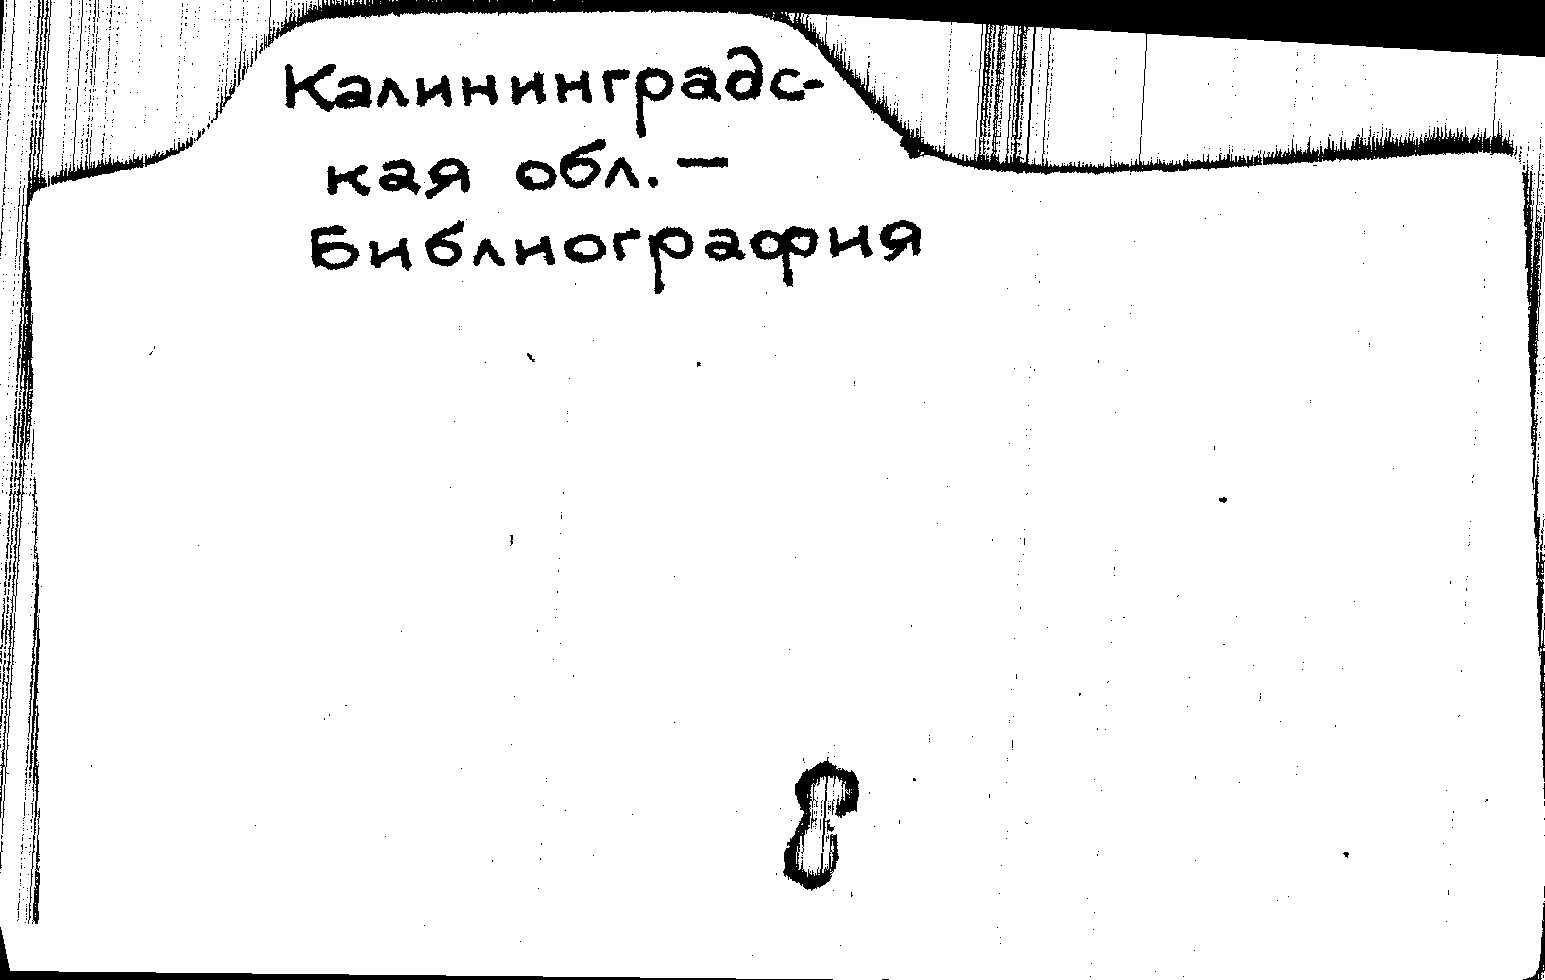 Калининградс-
кая обл. —
Библиография